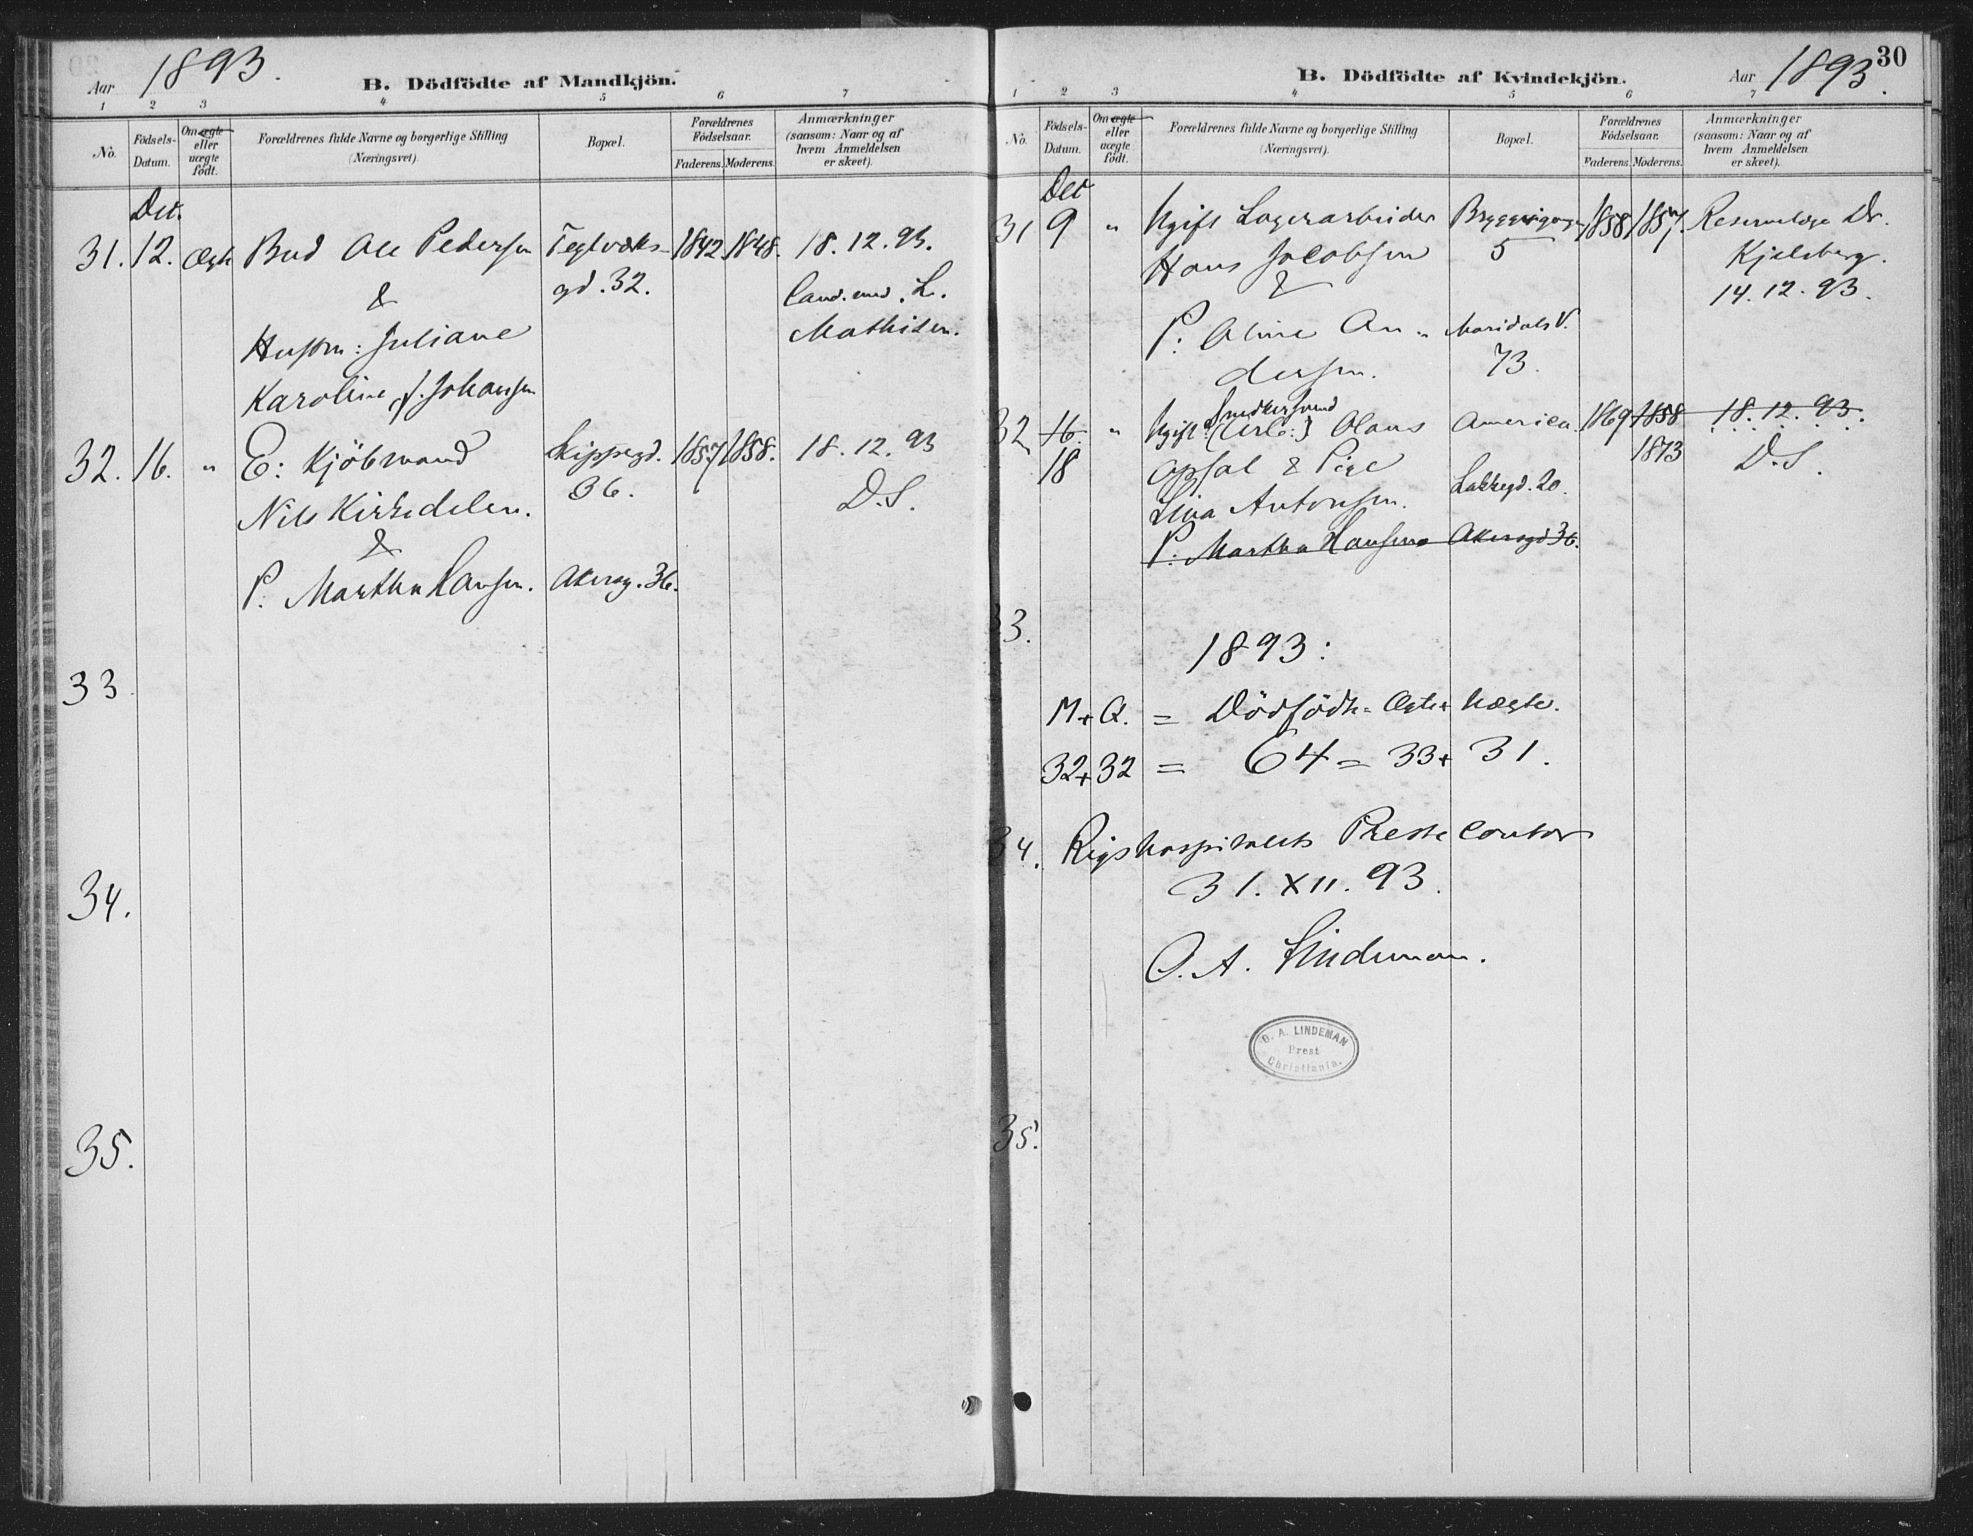 Aar 1893.
B. Dödfödte af Mandkjön.
1 2 3 4 5 6 7
No.
Födsels-
Datum.
Om ægte
eller
uægte
födt.
Forældrenes fulde Navne og borgerlige Stilling
(Næringsvei).
Bopæl.
Forældrenes
Födselsaar.
Faderens. Moderens.
Anmærkninger
(saasom: Naar og af
hvem Anmeldelsen
er skeet).
Dec.
31. 12. Ægte Bud Ole Pedersen Teglværks- 1842. 1848. 18.12.93.
gd. 32.
&
Cand. med. L.
Mathisen.
Hustru: Juliane
Karoline f. Johansen
32. 16. " E: Kjöbmand Skippergd. 1857 1858. 18.12.93
36. D.S.
Nils Kirkedelen.
&
P. Martha Hansen. Akersg. 36.
33
34.
35.
30
B. Dödfödte af Kvindekjön.
Aar 1893.
1 2 3 4 5 6 7
No.
Födsels-
Datum.
Om ægte
eller
uægte
födt.
Forældrenes fulde Navne og borgerlige Stilling
(Næringsvei).
Bopæl.
Forældrenes
Födselsaar.
Faderens. Moderens.
Anmærkninger
(saasom: Naar og af
hvem Anmeldelsen
er skeet).
Dec
31 9 " Ugift Lagerarbeider 1858 1857. Reservelæge Dr.
Hans Jacobsen 5 Kjelsberg.
& 14.12.93.
P: Oline An- Maridalsv.
dersen. 73.
Snedkersvend
32 16. " Ugift Olaus America 1869 1858 18.12.93.
18 Opsal & Pige 1873 D.S.
Lina Antonsen. Lakkegd. 20.
P. Martha Hansen Akersgd 36.
33.
1893:
M + Q. = Dödfödte = Ægte + Uægte.
32 + 32 = 64 = 33 + 31.
34. Rigshospitalets Prestecontor
31. XII. 93.
O. A. Lindeman.
O. A. LINDEMAN
Prest
Christiania.
35.